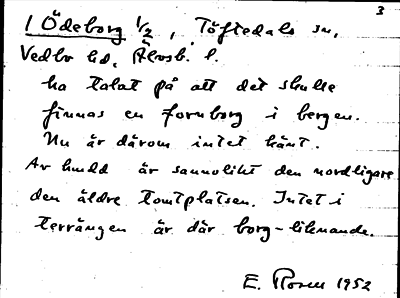 3
1 Ödeborg 1/2, Töftedals sn,
Vedbo hd, Älvsb. l.
ha talat på att det skulle
finnas en fornborg i bergen.
Nu är därom intet känt.
Av hudd är sannolikt den nordligare
den äldre tomtplatsen. Intet i
terrängen är där borg-liknande.
E. Rosen 1952